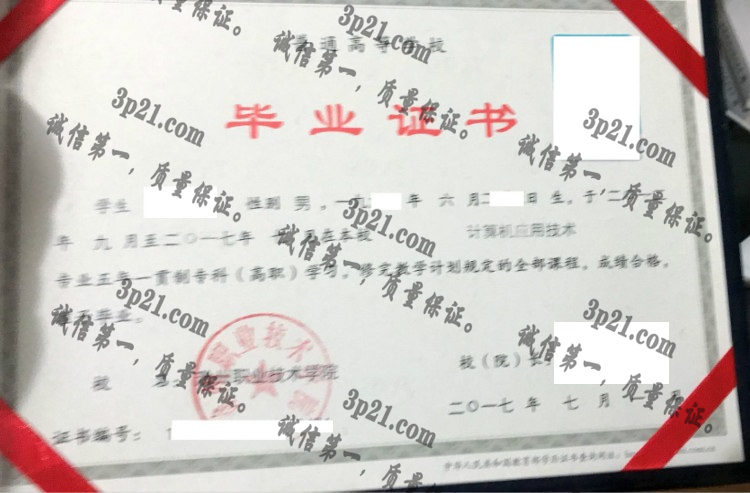 普通高等学校
毕业证书
学生 性别 男 ，一九 年 六 月二 日 生，于二〇一
年 九 月至二〇一七年 月在本校 计算机应用技术
专业五年一贯制专科（高职）学习，修完教学计划规定的全部课程，成绩合格，
准予毕业。
校 职业技术学院 校（院）长
二〇一七 年 七 月 日
证书编号：
中华人民共和国教育部学历证书查询网址：
职业技术
3p21.com
诚信第一，质量保证。
3p21.com
诚信第一，质量保证。
3p21.com
诚信第一，质量保证。
3p21.com
诚信第一，质量保证。
3p21.com
诚信第一，质量保证。
3p21.com
诚信第一，质量保证。
3p21.com
诚信第一，质量保证。
3p21.com
诚信第一，质量保证。
诚信第一，质量保证。